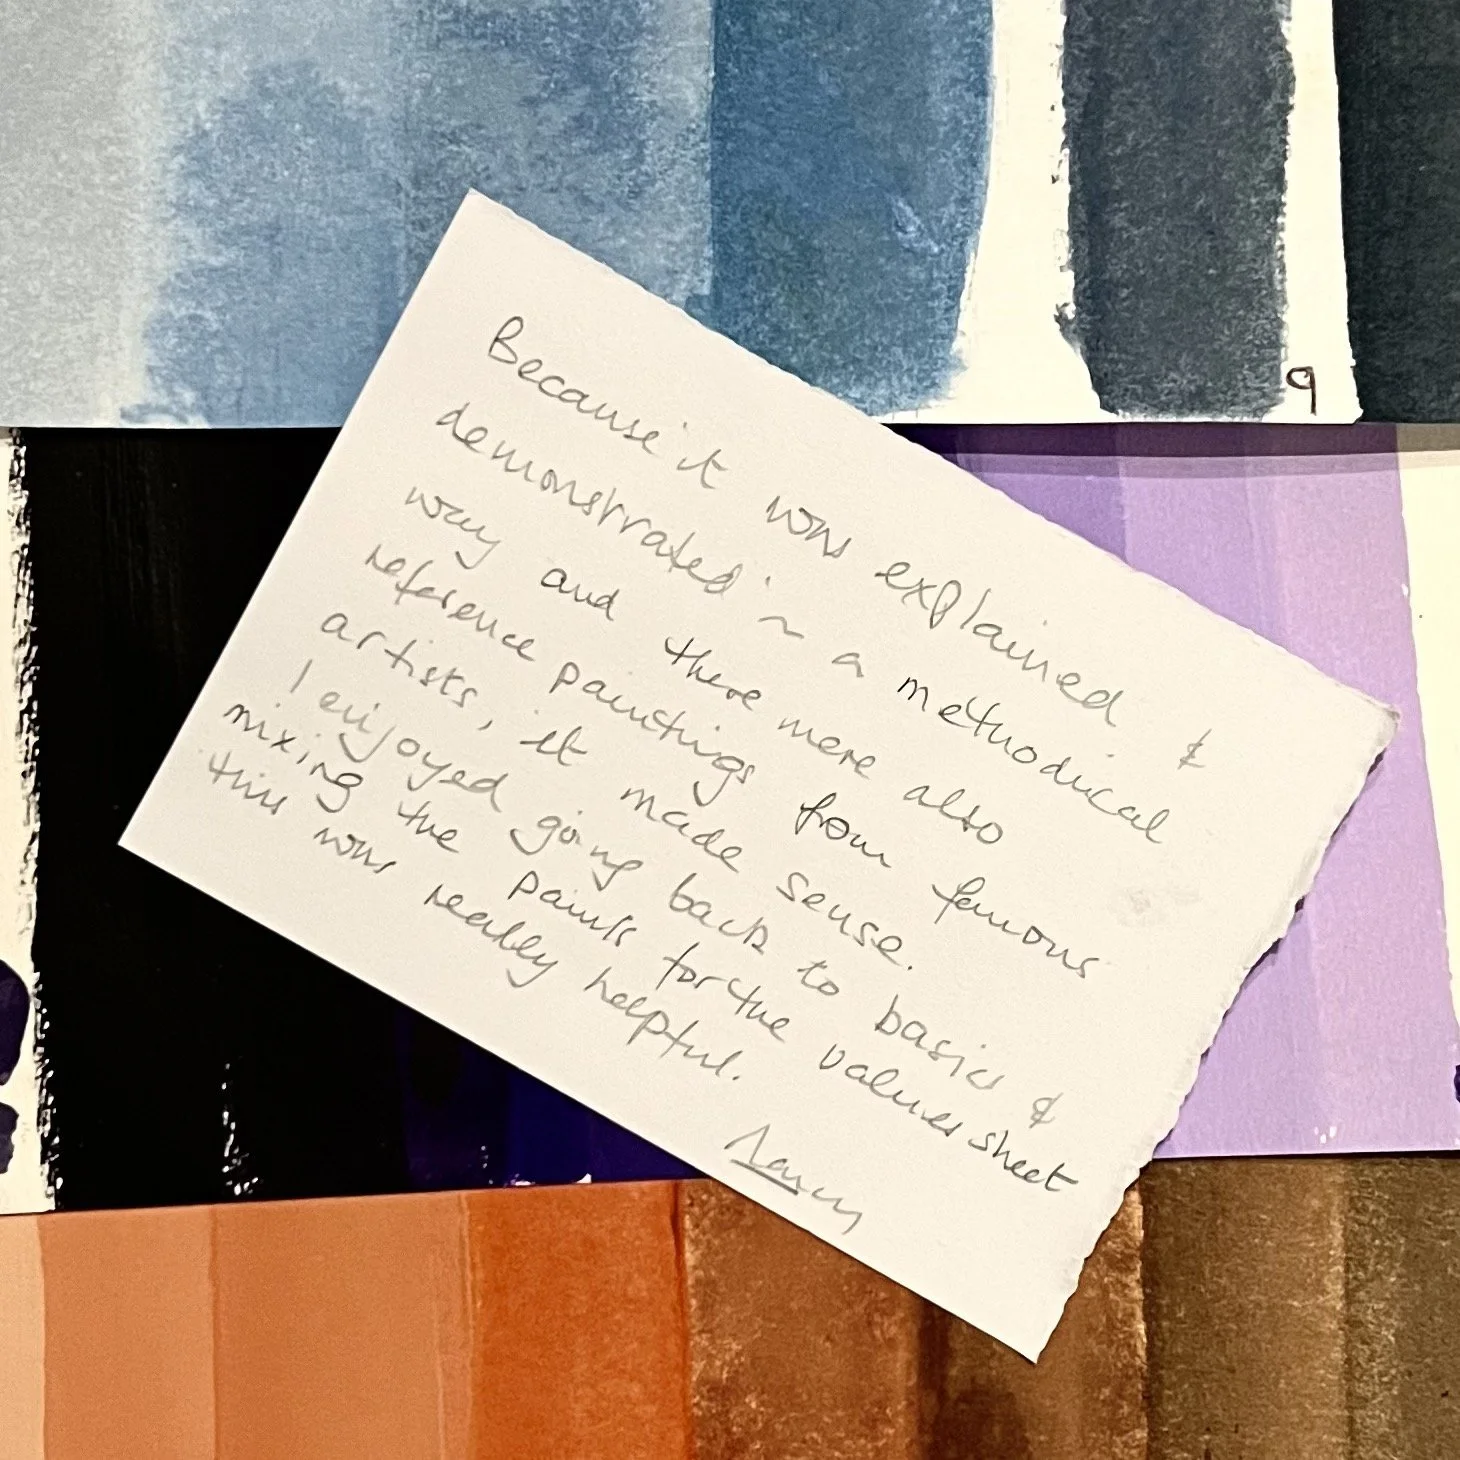 Because it was explained &
demonstrated in a methodical
way and there were also
reference paintings from famous
artists, it made sense.
I enjoyed going back to basics &
mixing the paints for the values sheet
this was really helpful.
Nancy
9